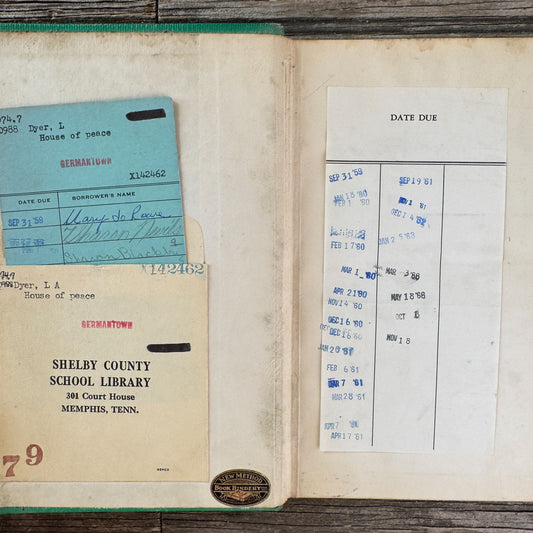 974.7
D988 Dyer, L
House of peace
GERMANTOWN
X142462
DATE DUE
BORROWER'S NAME
SEP 31 '59
Mary Jo
Sharon
X142462
974.7
D988 Dyer, L A
House of peace
GERMANTOWN
SHELBY COUNTY
SCHOOL LIBRARY
301 Court House
MEMPHIS, TENN.
79
NEW METHOD
BOOK BINDERY
DATE DUE
SEP 31 '59
JAN 13 '60
FEB 1 '60
FEB 17 '60
MAR 1 '60
APR 21 '60
NOV 14 '60
DEC 16 '60
DEC 16 '60
JAN 20 '61
FEB 6 '61
MAR 7 '61
MAR 28 '61
APR 17 '61
SEP 19 '61
NOV 1 '61
DEC 14 '61
JAN 25 '63
MAR
MAY 18 '68
OCT
NOV 18